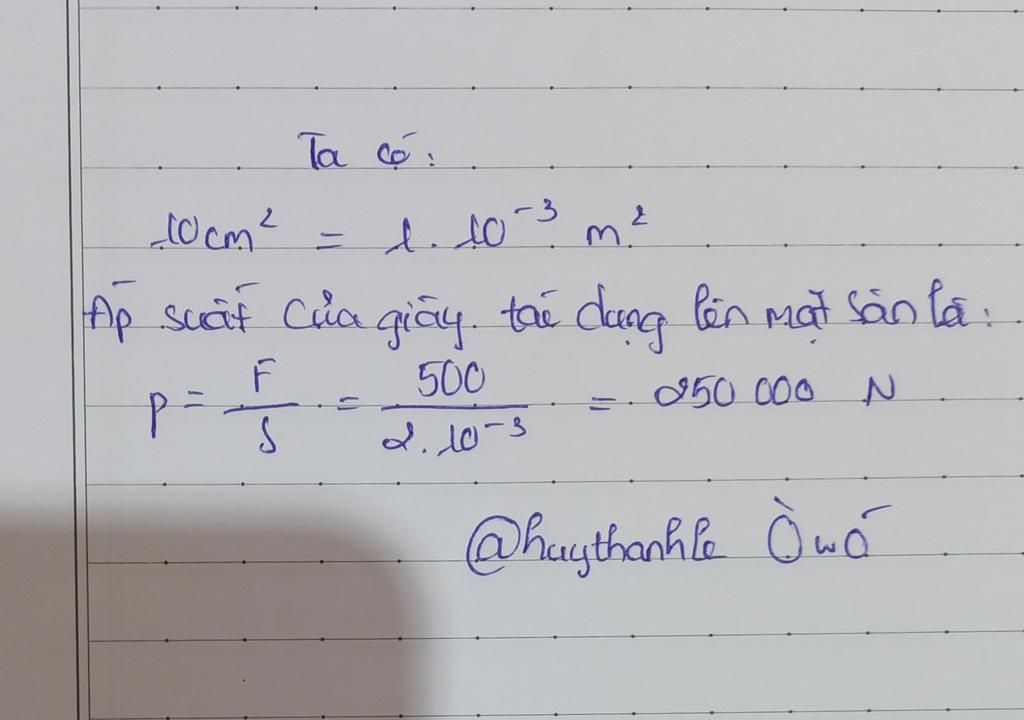 Ta có:
10cm² = 1.10⁻³ m²
Áp suất của giày tác dụng lên mặt sàn là:
p = F/S = 500/2.10⁻³ = 250 000 N
@huythanhle ÒwÓ